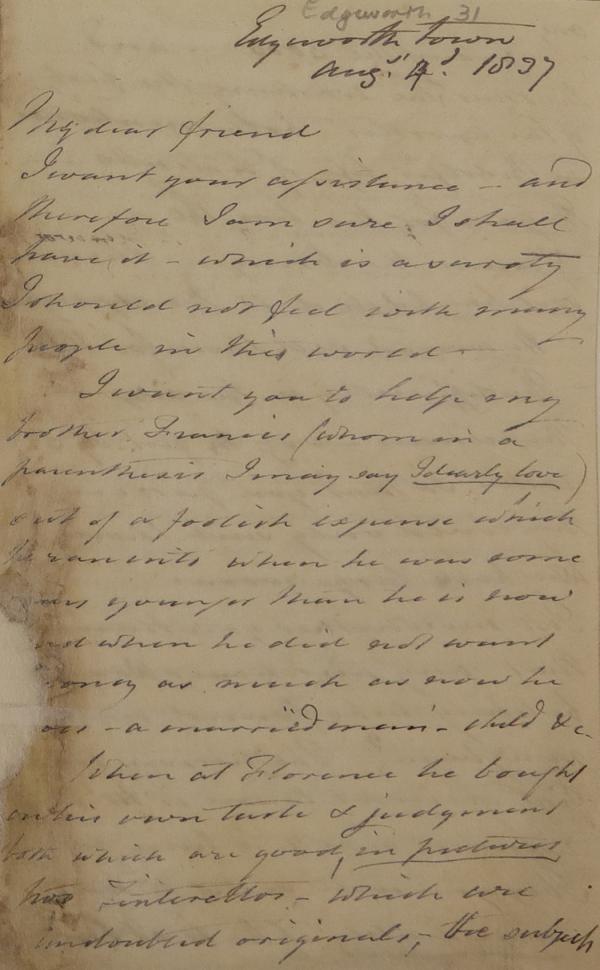 Edgeworth 31
Edgeworth town
Augst. 4d. 1837
My dear friend
I want your assistance - and
therefore I am sure I shall
have it - which is a surety
I should not feel with many
people in this world -
I want you to help my
brother Francis (whom in a
parenthesis I may say I dearly love)
out of a foolish expense which
he ran into when he was some
years younger than he is now
and when he did not want
money as much as now he
- a married man - child &c -
When at Florence he bought
on his own taste & judgement
both which are good, in pictures
two Tintorettos - which are
undoubted originals, - the subject